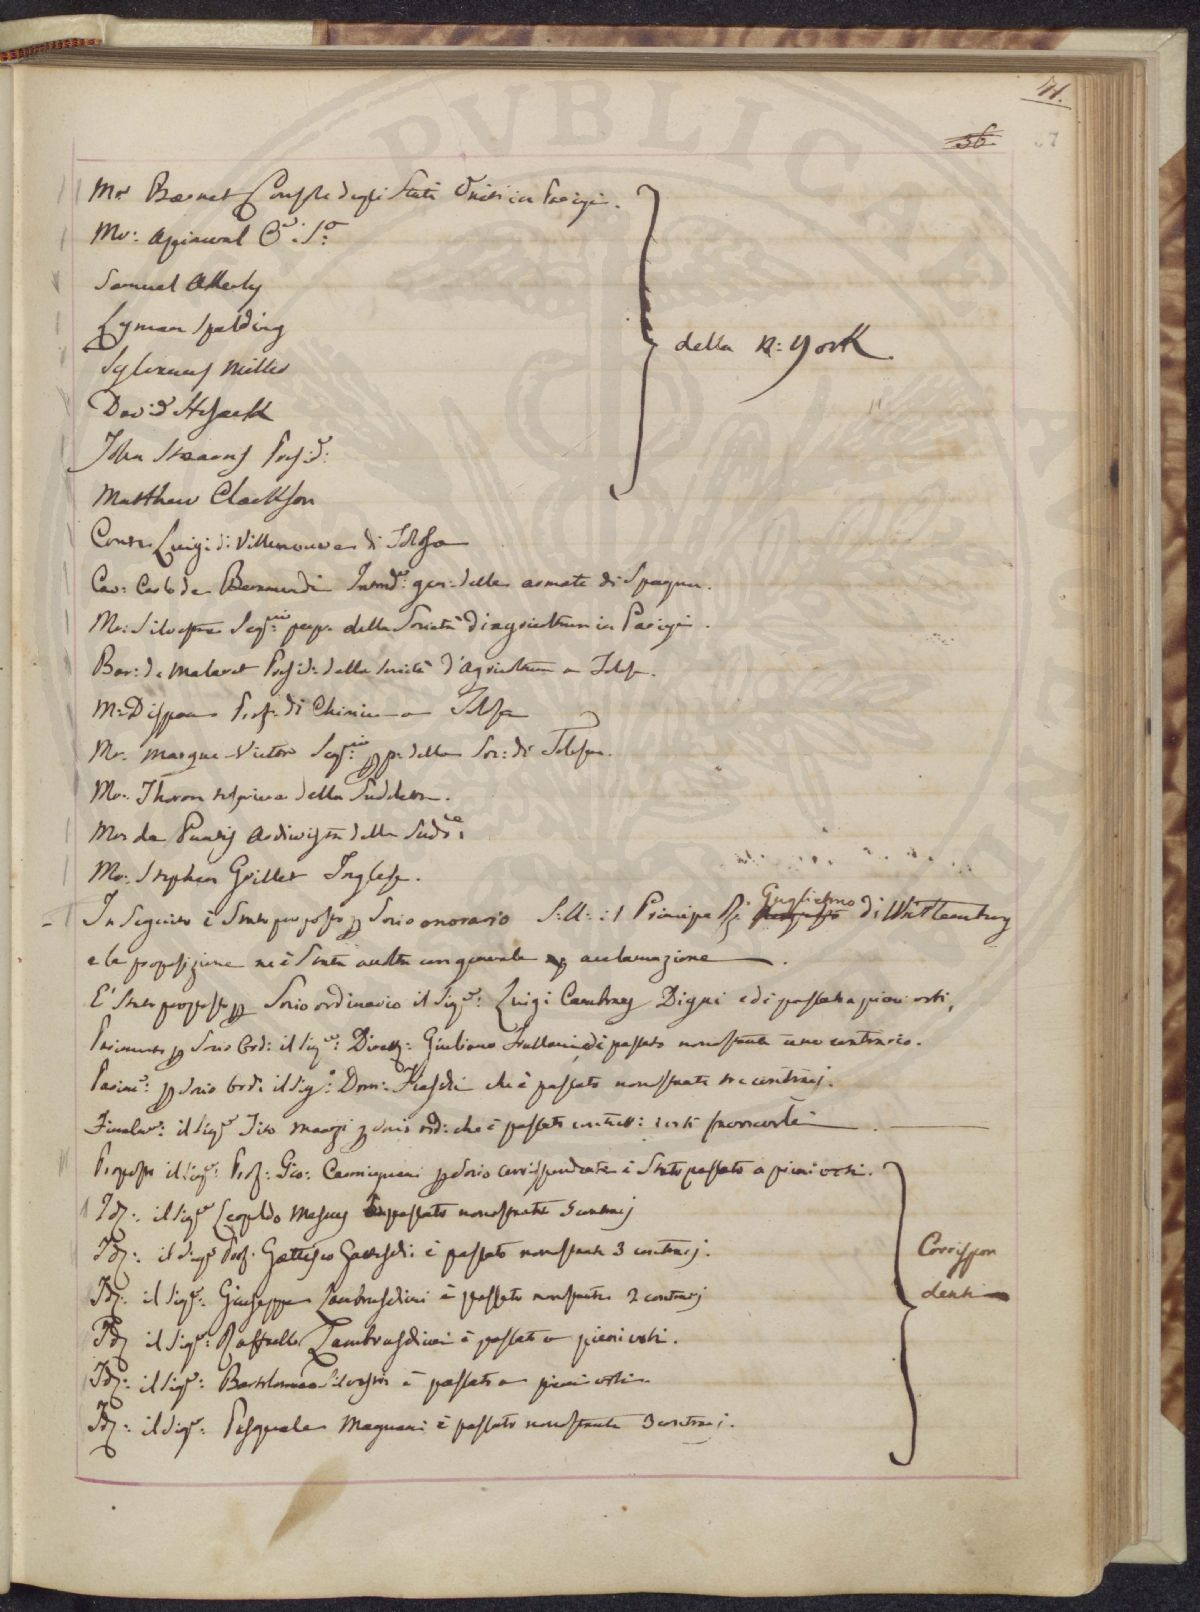 41.
36
37
Mr Barnet Console degli Stati Uniti in Parigi.
Mr:
Samuel Atterly
Lyman Spalding
Sylvanus Miller
David Hosack
John Stearns Presid:
Matthew Clarkson
della N: York
Conte Luigi di Villeneuve di Tolosa
Cav: Carlo de Bermundi Intend: gen: delle armate di Spagna.
Mr: Silvestre Segrio perp. della Società d'agricoltura in Parigi.
Bar: de Malaret Presid: della Società d'Agricoltura a Tolosa.
Mr: Prof: di Chimica a Tolosa
Mr. Marque-Victor Segrio pp: della Soc: di Tolosa.
Mr: Thoron della Suddetta.
Mr: de Puntis Archivista della Sudda:
Mr: Stephen Grillet Inglese.
In Seguito è Stato proposto p Socio onorario S: A: il Principe Guglielmo di Wirtemberg
e la proposizione ne è Stata accolta con generale acclamazione.
E' Stato proposto p Socio ordinario il Sigr: Luigi Cambray Digni ed è passato a pieni voti,
Parimente p Socio Ord: il Sigr: Giuliano Frullani, ed è passato nonostante uno contrario.
Parimte: p Socio Ord: il Sig: Dom: che è passato nonostante tre contrarj.
Finalmte: il Sigr Tito Manzi p Socio ord: che è passato con tutti i voti favorevoli.
Proposto il Sigr: Prof: Gio: Carmignani p Socio corrispondente è Stato passato a pieni voti.
Idm: il Sigr Leopoldo passato nonostante 5 contrarj
Idm: il Sigr Prof. Gatteschi è passato nonostante 3 contrarj.
Idm: il Sigr: Giuseppe Lambruschini è passato nonostante 2 contrarj
Idm il Sigr: Raffaello Lambruschini è passato a pieni voti.
Idm: il Sigr: Bartolomeo Silvestri è passato a pieni voti.
Idm: il Sigr: Pasquale Magnani è passato nonostante 3 contrarj.
Corrispon
denti